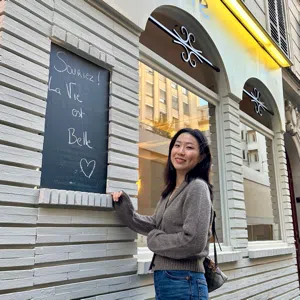 Souriez!
La Vie
est
Belle